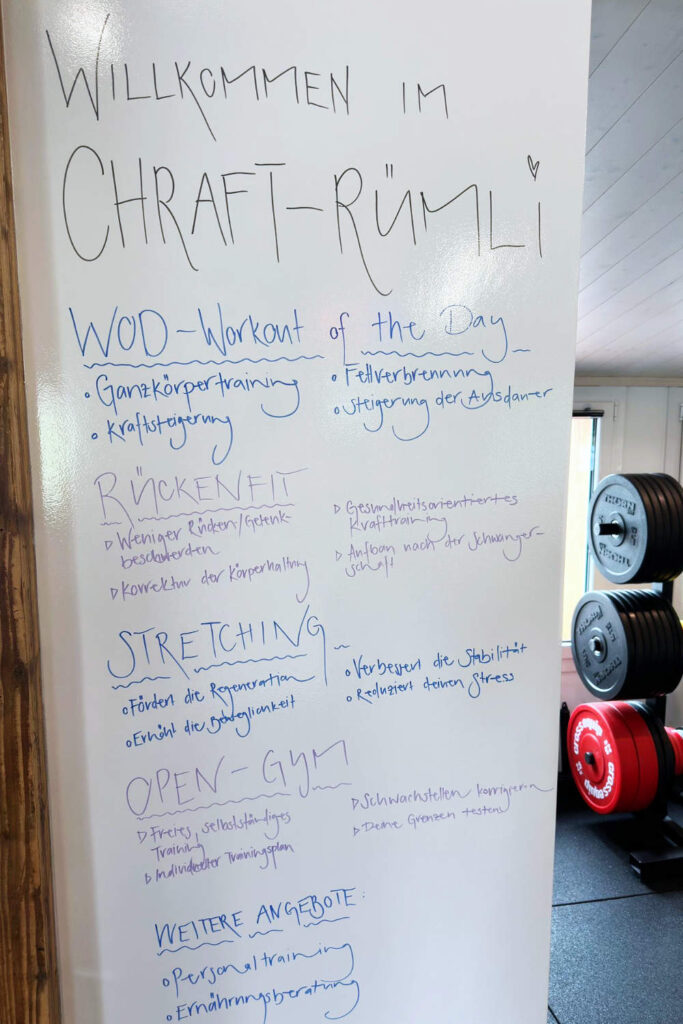 WILLKOMMEN IM
CHRAFT-RÜMLi
WOD-Workout of the Day
• Ganzkörpertraining
• Kraftsteigerung
• Fettverbrennung
• Steigerung der Ausdauer
RÜCKENFIT
▷ Weniger Rücken/Gelenk-
beschwerden
▷ Korrektur der Körperhaltung
▷ Gesundheitsorientiertes
Krafttraining
▷ Aufbau nach der Schwanger-
schaft
STRETCHING
• Fördert die Regeneration
• Erhöht die Beweglichkeit
• Verbessert die Stabilität
• Reduziert deinen Stress
OPEN-GYM
▷ Freies, selbstständiges
Training
▷ Individueller Trainingsplan
▷ Schwachstellen korrigieren
▷ Deine Grenzen testen
WEITERE ANGEBOTE:
• Personaltraining
• Ernährungsberatung